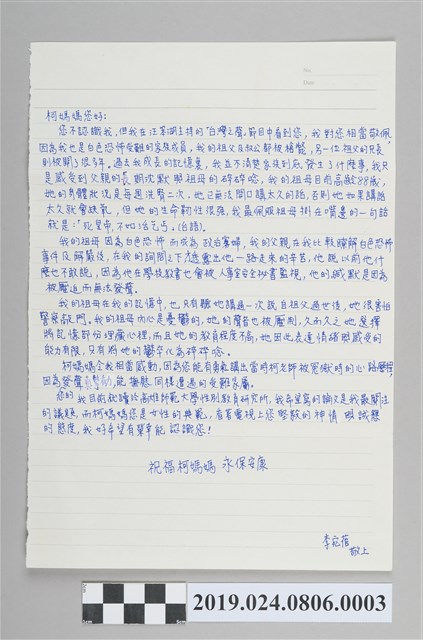 No:
Date:
柯媽媽您好:
您不認識我,但我在汪笨湖主持的「台灣之聲」節目中看到您,我對您相當敬佩,
因為我也是白色恐怖受難的家族成員,我的祖父在叔公都被槍斃,另一位祖父的兄長
則被關了很多年。過去我成長的記憶裏,我並不清楚家族到底發生了什麼事,我只
是感受到父親的長期沈默跟祖母的碎碎唸,我的祖母目前高齡88歲,
她的身體狀況是每週洗腎二次,她已無法開口講太久的話,否則她如果講話
太久就會缺氧,但她的生命韌性很強,我最佩服祖母掛在嘴邊的一句話
就是:「死皇帝,不如活乞丐。(台語)。
我的祖母因為白色恐怖而成為政治寡婦,我的父親,在我比較瞭解白色恐怖
事件及解嚴後,在我的詢問之下透露出他一路走來的辛苦,他說以前他什
麼也不敢說,因為他在學校教書也會被人事室安全秘書監視,他的緘默是因為
被壓迫而無法發聲。
我的祖母在我的記憶中,也只有聽她講過一次說自祖父過世後,她很害怕
警察敲門,我的祖母內心是憂鬱的,她的聲音也被壓制,久而久之她選擇
將記憶部份埋藏心裡,而且她的教育程度不高,她因此表達情緒與感受的
能力有限,只有將她的鬱卒化為碎碎唸。
柯媽媽令我相當感動,因為您能有勇氣講出當時柯老師被冤獄時的心路歷程,
因為發聲能撫慰同樣遭遇的受難家屬。
我目前就讀於高雄師範大學性別教育研究所,我希望寫的論文是我最關注
的議題,而柯媽媽您是女性的典範,看著電視上您堅毅的神情跟誠懇
的態度,我好希望有榮幸能認識您!
祝福柯媽媽 永保安康
李宛蓓
敬上
2019.024.0806.0003